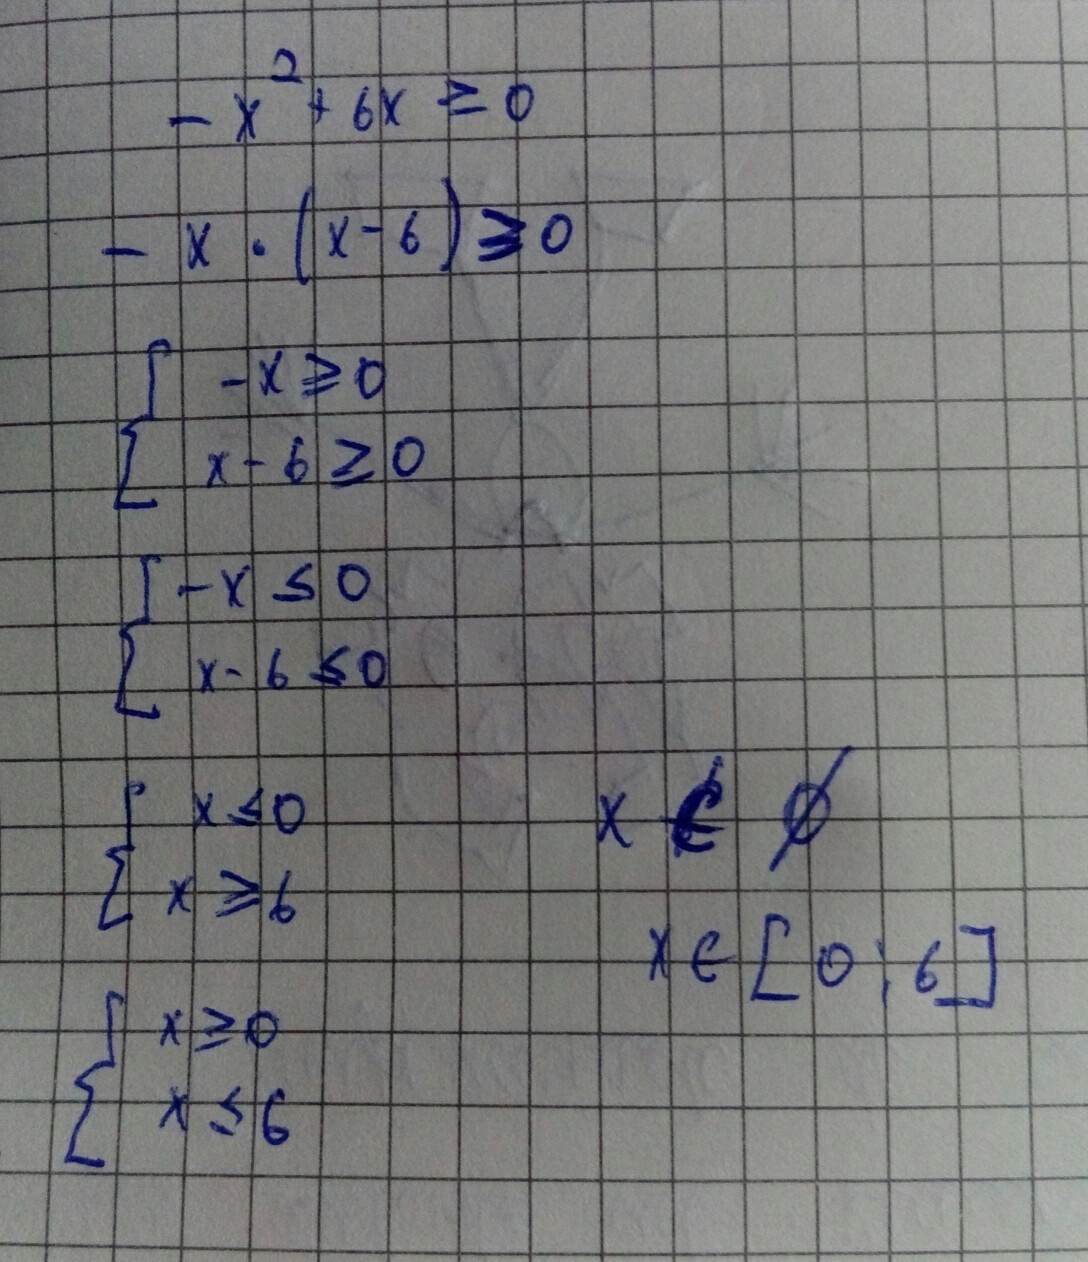 -x² + 6x ≥ 0
-x · (x-6) ≥ 0
{ -x ≥ 0
x - 6 ≥ 0
{ -x ≤ 0
x - 6 ≤ 0
{ x ≤ 0
x ≥ 6
x ∈ ∅
x ∈ [0; 6]
{ x ≥ 0
x ≤ 6